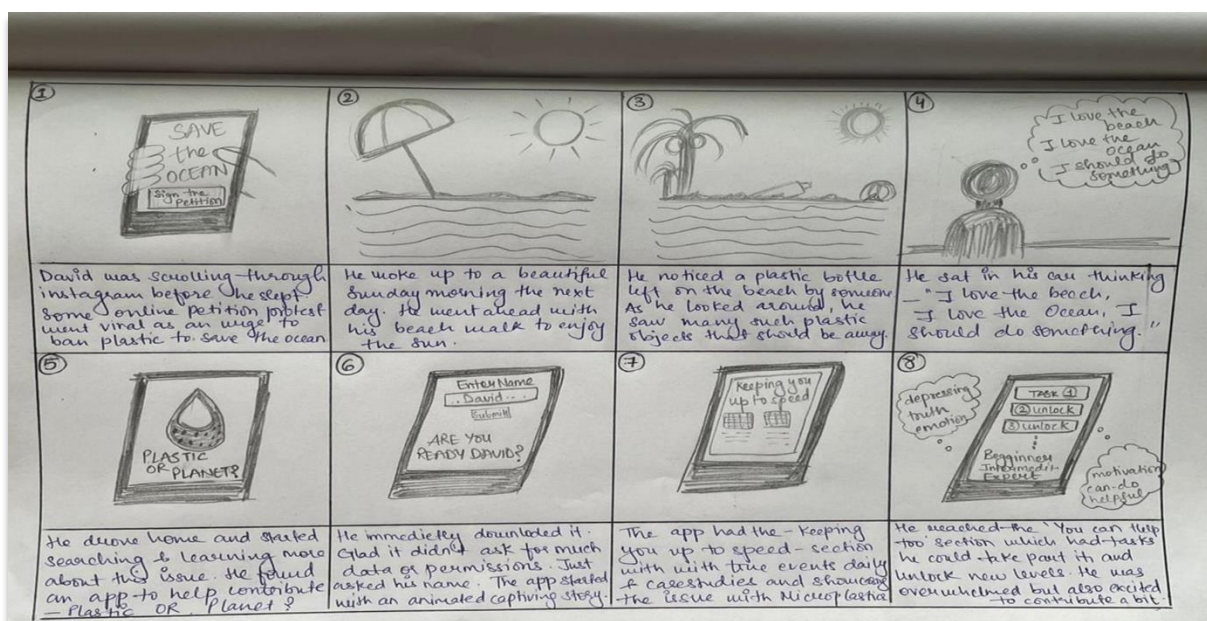 ①
SAVE
the
OCEAN
Sign the
Petition
David was scrolling through
instagram before he slept
some online petition protest
went viral as an urge to
ban plastic to save the ocean
②
He woke up to a beautiful
Sunday morning the next
day. He went ahead with
his beach walk to enjoy
the sun.
③
He noticed a plastic bottle
left on the beach by someone
As he looked around, he
saw many such plastic
objects that should be away.
④
I love the
beach
I love the
ocean
I should do
something
He sat in his car thinking
– "I love the beach,
I love the Ocean, I
should do something."
⑤
PLASTIC
OR PLANET?
He drove home and started
searching & learning more
about this issue. He found
an app to help contribute
– Plastic OR Planet?
⑥
Enter Name
..David...
Submit
ARE YOU
READY DAVID?
He immedietly downloded it.
Glad it didn't ask for much
data or permissions. Just
asked his name. The app started
with an animated captiving story.
⑦
Keeping you
up to speed
The app had the – Keeping
you up to speed – section
with with true events daily
& casestudies and showcase
the issue with Microplastia
⑧
depressing
truth
emotion
TASK ①
② unlock
③ unlock
Begginner
Intermedit
Expert
motivation
can-do
helpful
He reached the 'You can help
too' section which had tasks
he could take part in and
unlock new levels. He was
overwhelmed but also excited
to contribute a bit.